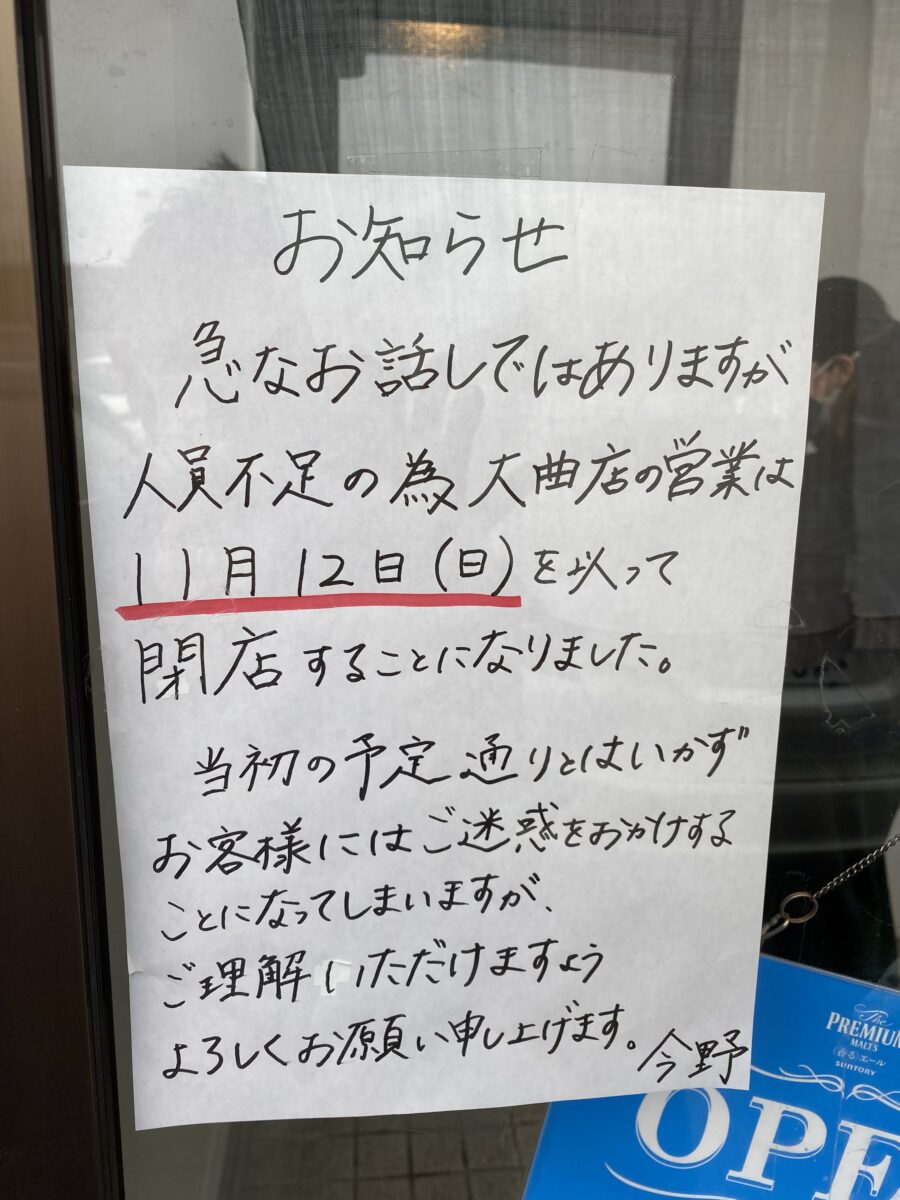 お知らせ
急なお話しではありますが
人員不足の為大曲店の営業は
11月12日(日)を以って
閉店することになりました。
当初の予定通りとはいかず
お客様にはご迷惑をおかけする
ことになってしまいますが、
ご理解いただけますよう
よろしくお願い申し上げます。
今野
The
PREMIUM
MALT'S
香るエール
SUNTORY
OPE